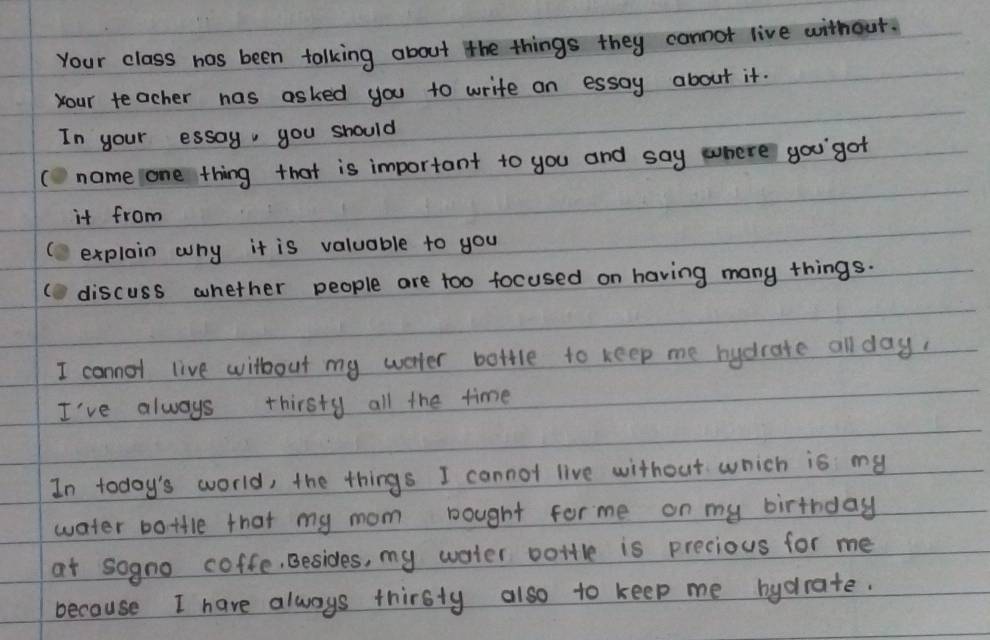 Your class has been talking about the things they cannot live without.
Your teacher has asked you to write an essay about it.
In your essay, you should
name one thing that is important to you and say where you got
it from
explain why it is valuable to you
discuss whether people are too focused on having many things.
I cannot live without my water bottle to keep me hydrate all day,
I've always thirsty all the time
In today's world, the things I cannot live without which is my
water bottle that my mom bought for me on my birthday
at Sogno coffe. Besides, my water bottle is precious for me
because I have always thirsty also to keep me hydrate.